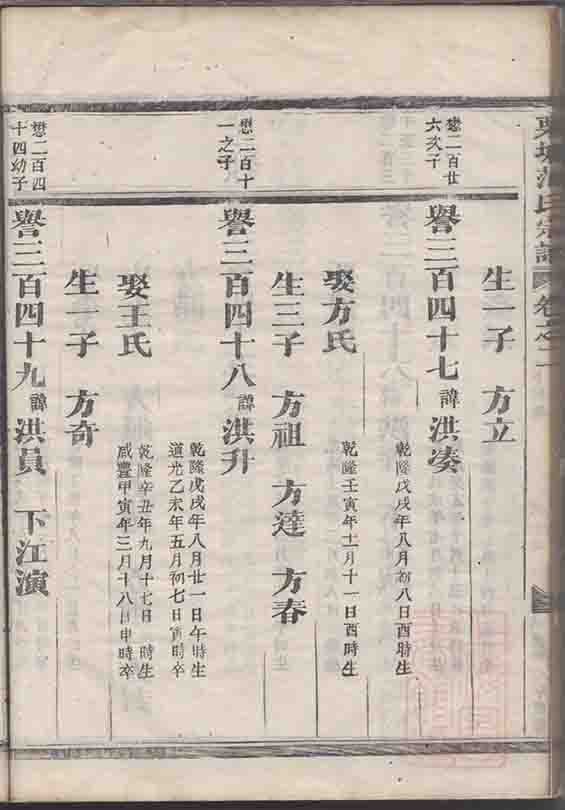 氏宗譜 卷之二
生一子 方立
懋二百廿
六次子
譽三百四十七諱洪凑
乾隆戊戌年八月初八日酉時生
娶方氏
乾隆壬寅年十一月十一日酉時生
生三子 方祖 方達 方春
懋二百十
一之子
譽三百四十八諱洪升
乾隆戊戌年八月廿一日午時生
道光乙未年五月初七日寅時卒
娶王氏
乾隆辛丑年九月十七日 時生
咸豐甲寅年三月十八日申時卒
生一子 方奇
懋二百四
十四幼子
譽三百四十九諱洪員 下江演